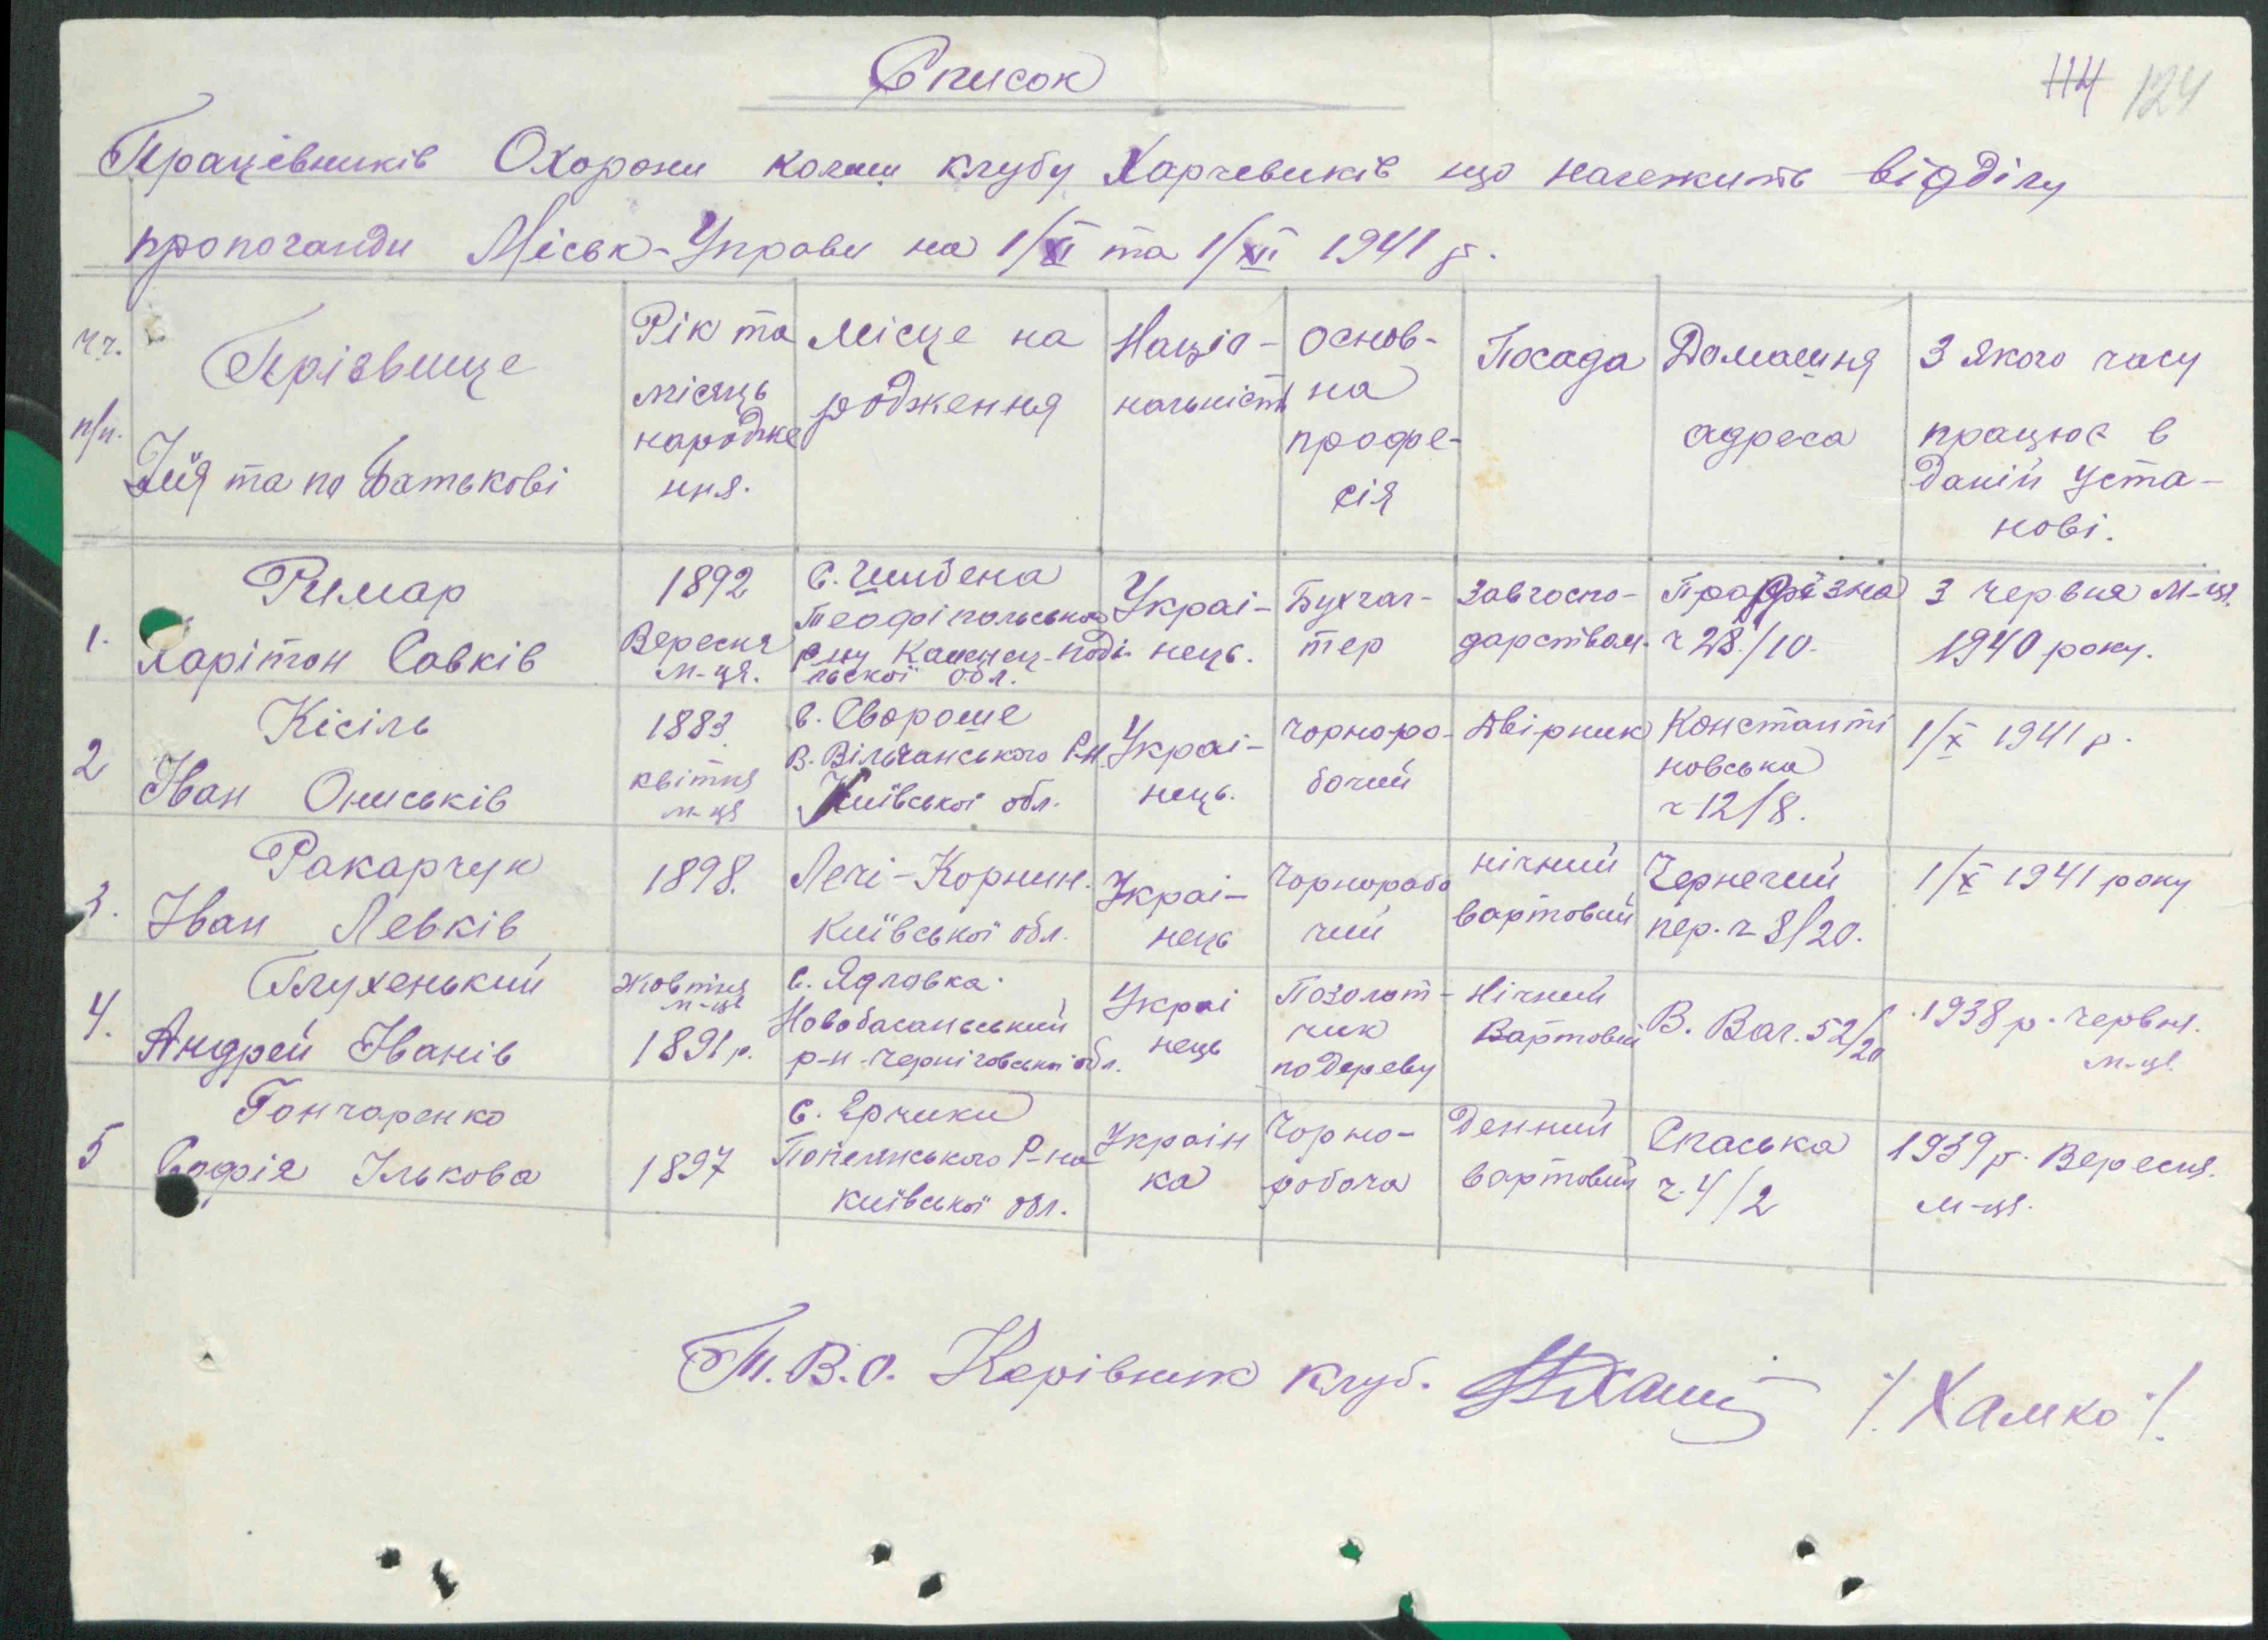 Список
114 124
Працівників Охорони колиш клубу Харчевиків що належить відділу
пропоганди Міськ-Управи на 1/XI та 1/XII 1941 р.
ч.ч. п/п.
Прізвище
Імя та по Батькові
Рік та
місяць
народже
ння.
Місце на
родження
Націо-
нальність
Основ-
на
профе-
сія
Посада
Домашня
адреса
З якого часу
працює в
Даній Уста-
нові.
1.
Римар
Харітон Савків
1892
Вересня
м-ця.
Теофіпольського
р-ну Каменец-поді-
льскої обл.
Украі-
нець.
Бухгал-
тер
Завгоспо-
дарством.
Прорізна
ч 28./10.
З червня м-ця.
1940 року.
2
Кісіль
Іван Ониськів
1883
квітня
м-ця
с. Свороше
В. Вільчанського Р-н.
Київської обл.
Украі-
нець.
Чорноро-
бочий
Двірник
Константі
новська
ч 12/8.
1/X 1941 р.
3.
Ракарчук
Іван Левків
1898.
Лечі-Корнин.
Київської обл.
Украі-
нець
Чорноробо
чий
нічний
вартовий
Чернечий
пер. ч 8/20.
1/X 1941 року
4.
Глухенький
Андрей Іванів
жовтня
м-ця
1891 р.
с. Ядловка.
Новобасаньський
р-н. Черніговської обл.
Украі
нець
Позолот-
чик
по Дереву
Нічний
Вартовий
В. Вал. 52/20
1938 р. червня.
м-ця.
5
Гончаренко
Софія Ількова
1897
с. Єрчики
Попелнського Р-на
Київської обл.
Украін
ка
Чорно-
робоча
Денний
вартовий
Спаська
ч. 4/2
1939 р. Вересня.
м-ця.
Т.В.О. Керівник клуб. /. Хамко /.